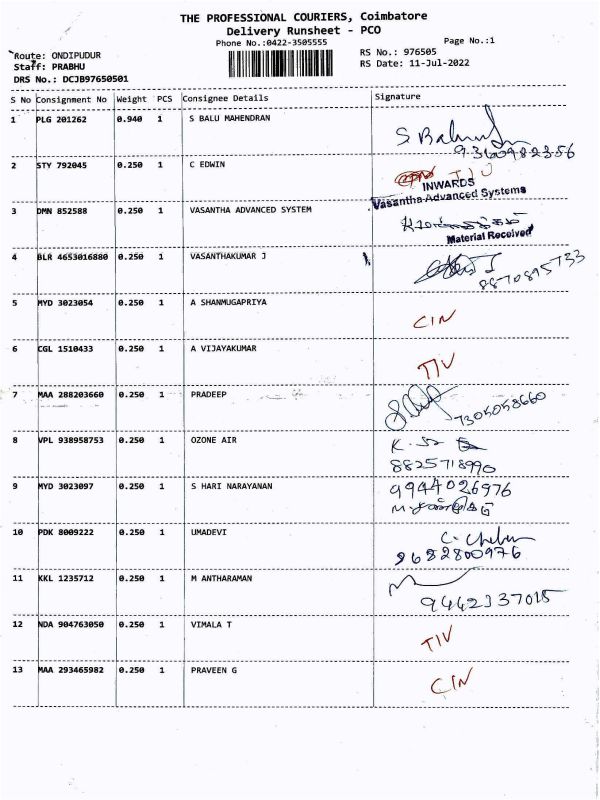 THE PROFESSIONAL COURIERS, Coimbatore
Delivery Runsheet - PCO
Phone No.:0422-3505555
Page No.:1
Route: ONDIPUDUR
RS No.: 976505
Staff: PRABHU
RS Date: 11-Jul-2022
DRS No.: DCJB97650501
S No Consignment No Weight PCS Consignee Details Signature
1 PLG 201262 0.940 1 S BALU MAHENDRAN
9360982356
2 STY 792045 0.250 1 C EDWIN
INWARDS
Vasantha Advanced Systems
3 DMN 852588 0.250 1 VASANTHA ADVANCED SYSTEM
Material Received
4 BLR 4653016880 0.250 1 VASANTHAKUMAR J
8870895733
5 MYD 3023054 0.250 1 A SHANMUGAPRIYA CIN
6 CGL 1510433 0.250 1 A VIJAYAKUMAR TIV
7 MAA 288203660 0.250 1 PRADEEP
7305058660
8 VPL 938958753 0.250 1 OZONE AIR
8825718990
9 MYD 3023097 0.250 1 S HARI NARAYANAN 9944026976
10 PDK 8009222 0.250 1 UMADEVI
9682800976
11 KKL 1235712 0.250 1 M ANTHARAMAN
9442337015
12 NDA 904763050 0.250 1 VIMALA T TIV
13 MAA 293465982 0.250 1 PRAVEEN G CIN